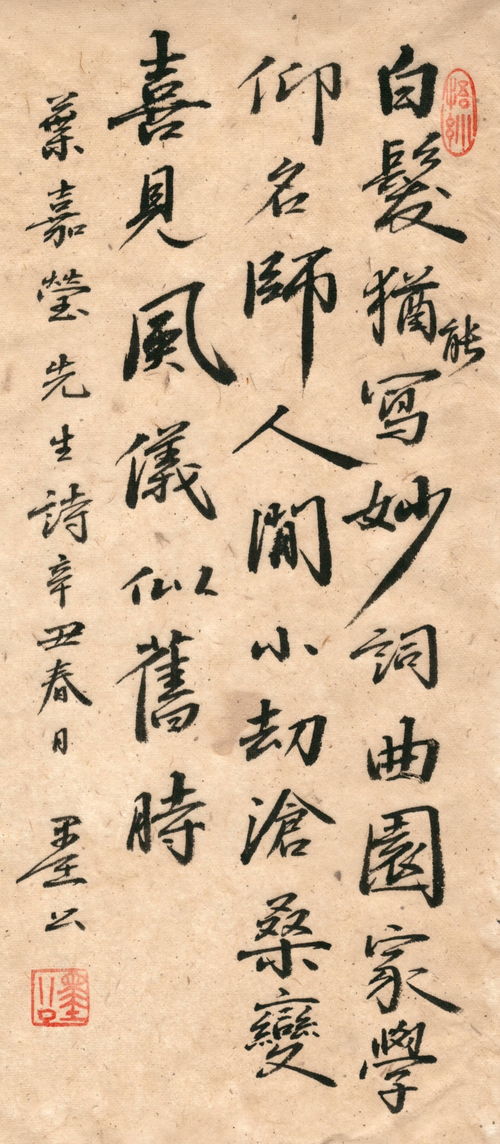 白髮猶能寫妙詞曲園家學
仰名師人間小劫滄桑變
喜見風儀似舊時
葉嘉瑩先生詩辛丑春日 墨公